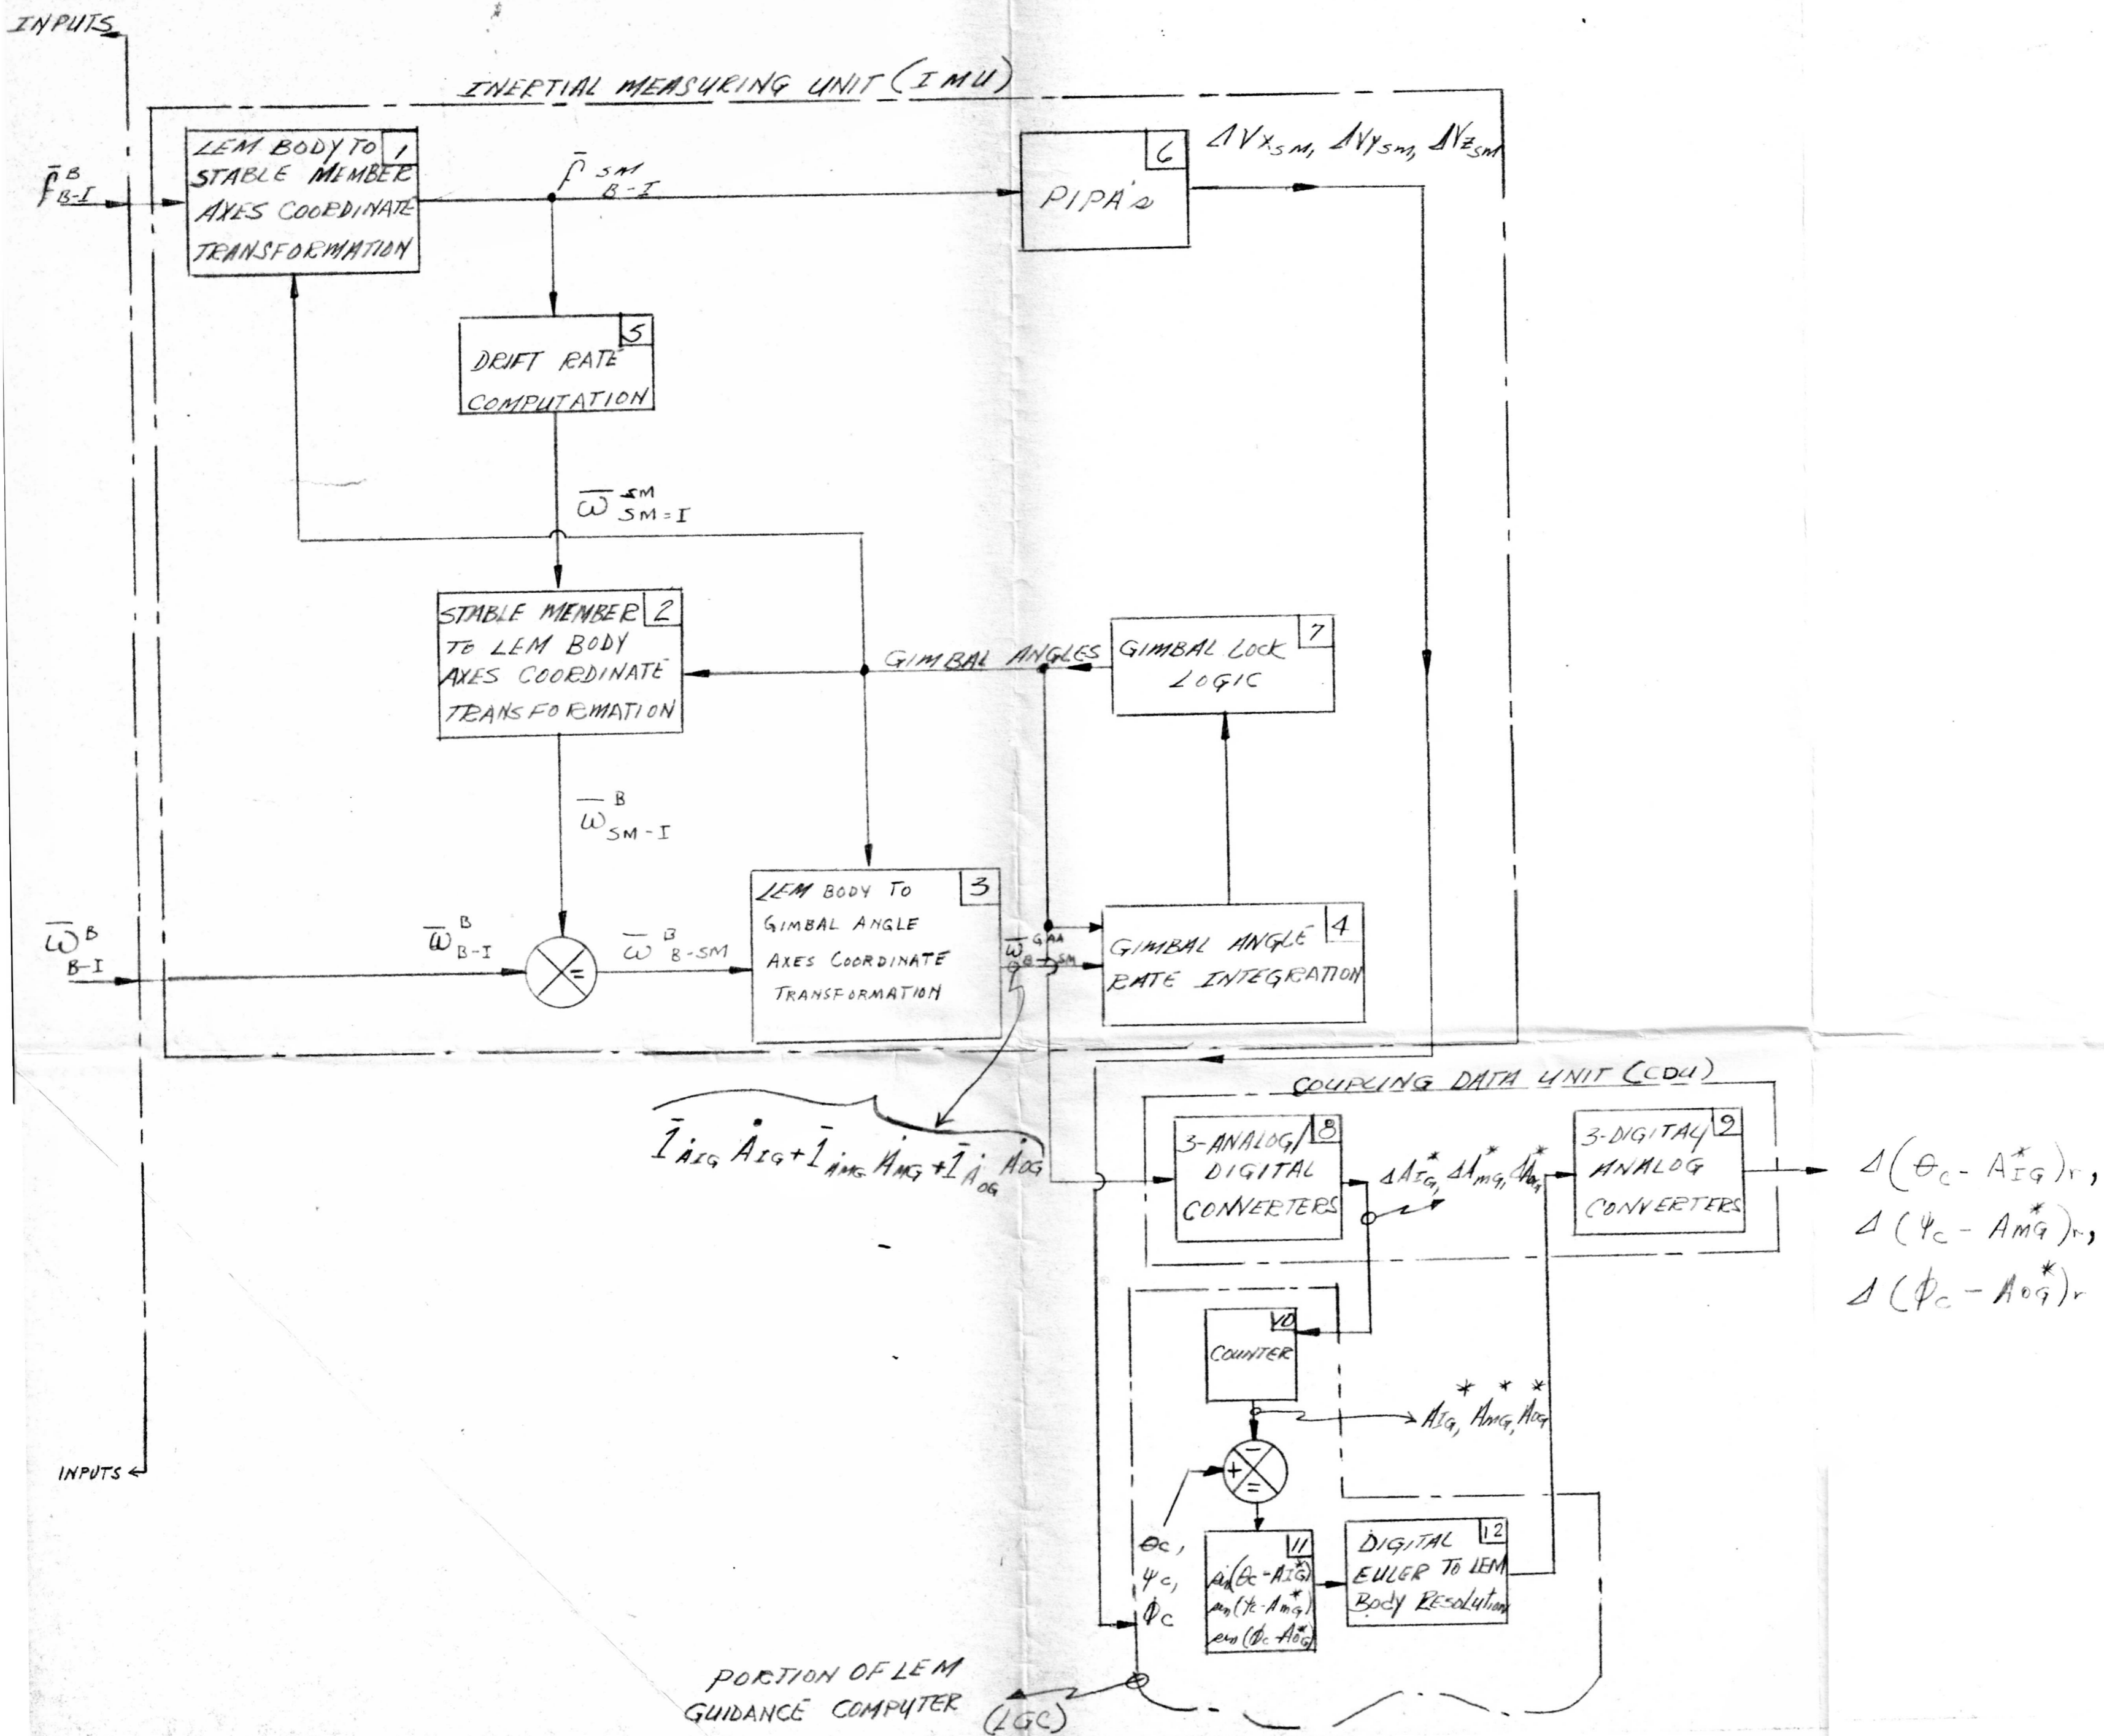 INPUTS
INERTIAL MEASURING UNIT (IMU)
f̄ᴮ B-I
LEM BODY TO 1
STABLE MEMBER
AXES COORDINATE
TRANSFORMATION
f̄ SM B-I
6
PIPA's
ΔVx SM, ΔVy SM, ΔVz SM
5
DRIFT RATE
COMPUTATION
ω̄ SM SM=I
STABLE MEMBER 2
TO LEM BODY
AXES COORDINATE
TRANSFORMATION
GIMBAL ANGLES
7
GIMBAL LOCK
LOGIC
ω̄ B SM-I
ω̄ B B-I
ω̄ B B-I
=
ω̄ B B-SM
LEM BODY TO 3
GIMBAL ANGLE
AXES COORDINATE
TRANSFORMATION
ω̄ GAA B-SM
4
GIMBAL ANGLE
RATE INTEGRATION
COUPLING DATA UNIT (CDU)
1̄ȦIG ȦIG + 1̄ȦMG ȦMG + 1̄ȦOG ȦOG
3-ANALOG/ 8
DIGITAL
CONVERTERS
ΔA*IG, ΔA*MG, ΔA*OG
3-DIGITAL/ 9
ANALOG
CONVERTERS
Δ(θc - A*IG)r,
Δ(ψc - A*MG)r,
Δ(ϕc - A*OG)r
10
COUNTER
A*IG, A*MG, A*OG
-
+
=
INPUTS
θc,
ψc,
ϕc
11
sin(θc-A*IG)
sin(ψc-A*MG)
sin(ϕc-A*OG)
DIGITAL 12
EULER TO LEM
BODY RESOLUTION
PORTION OF LEM
GUIDANCE COMPUTER
(LGC)